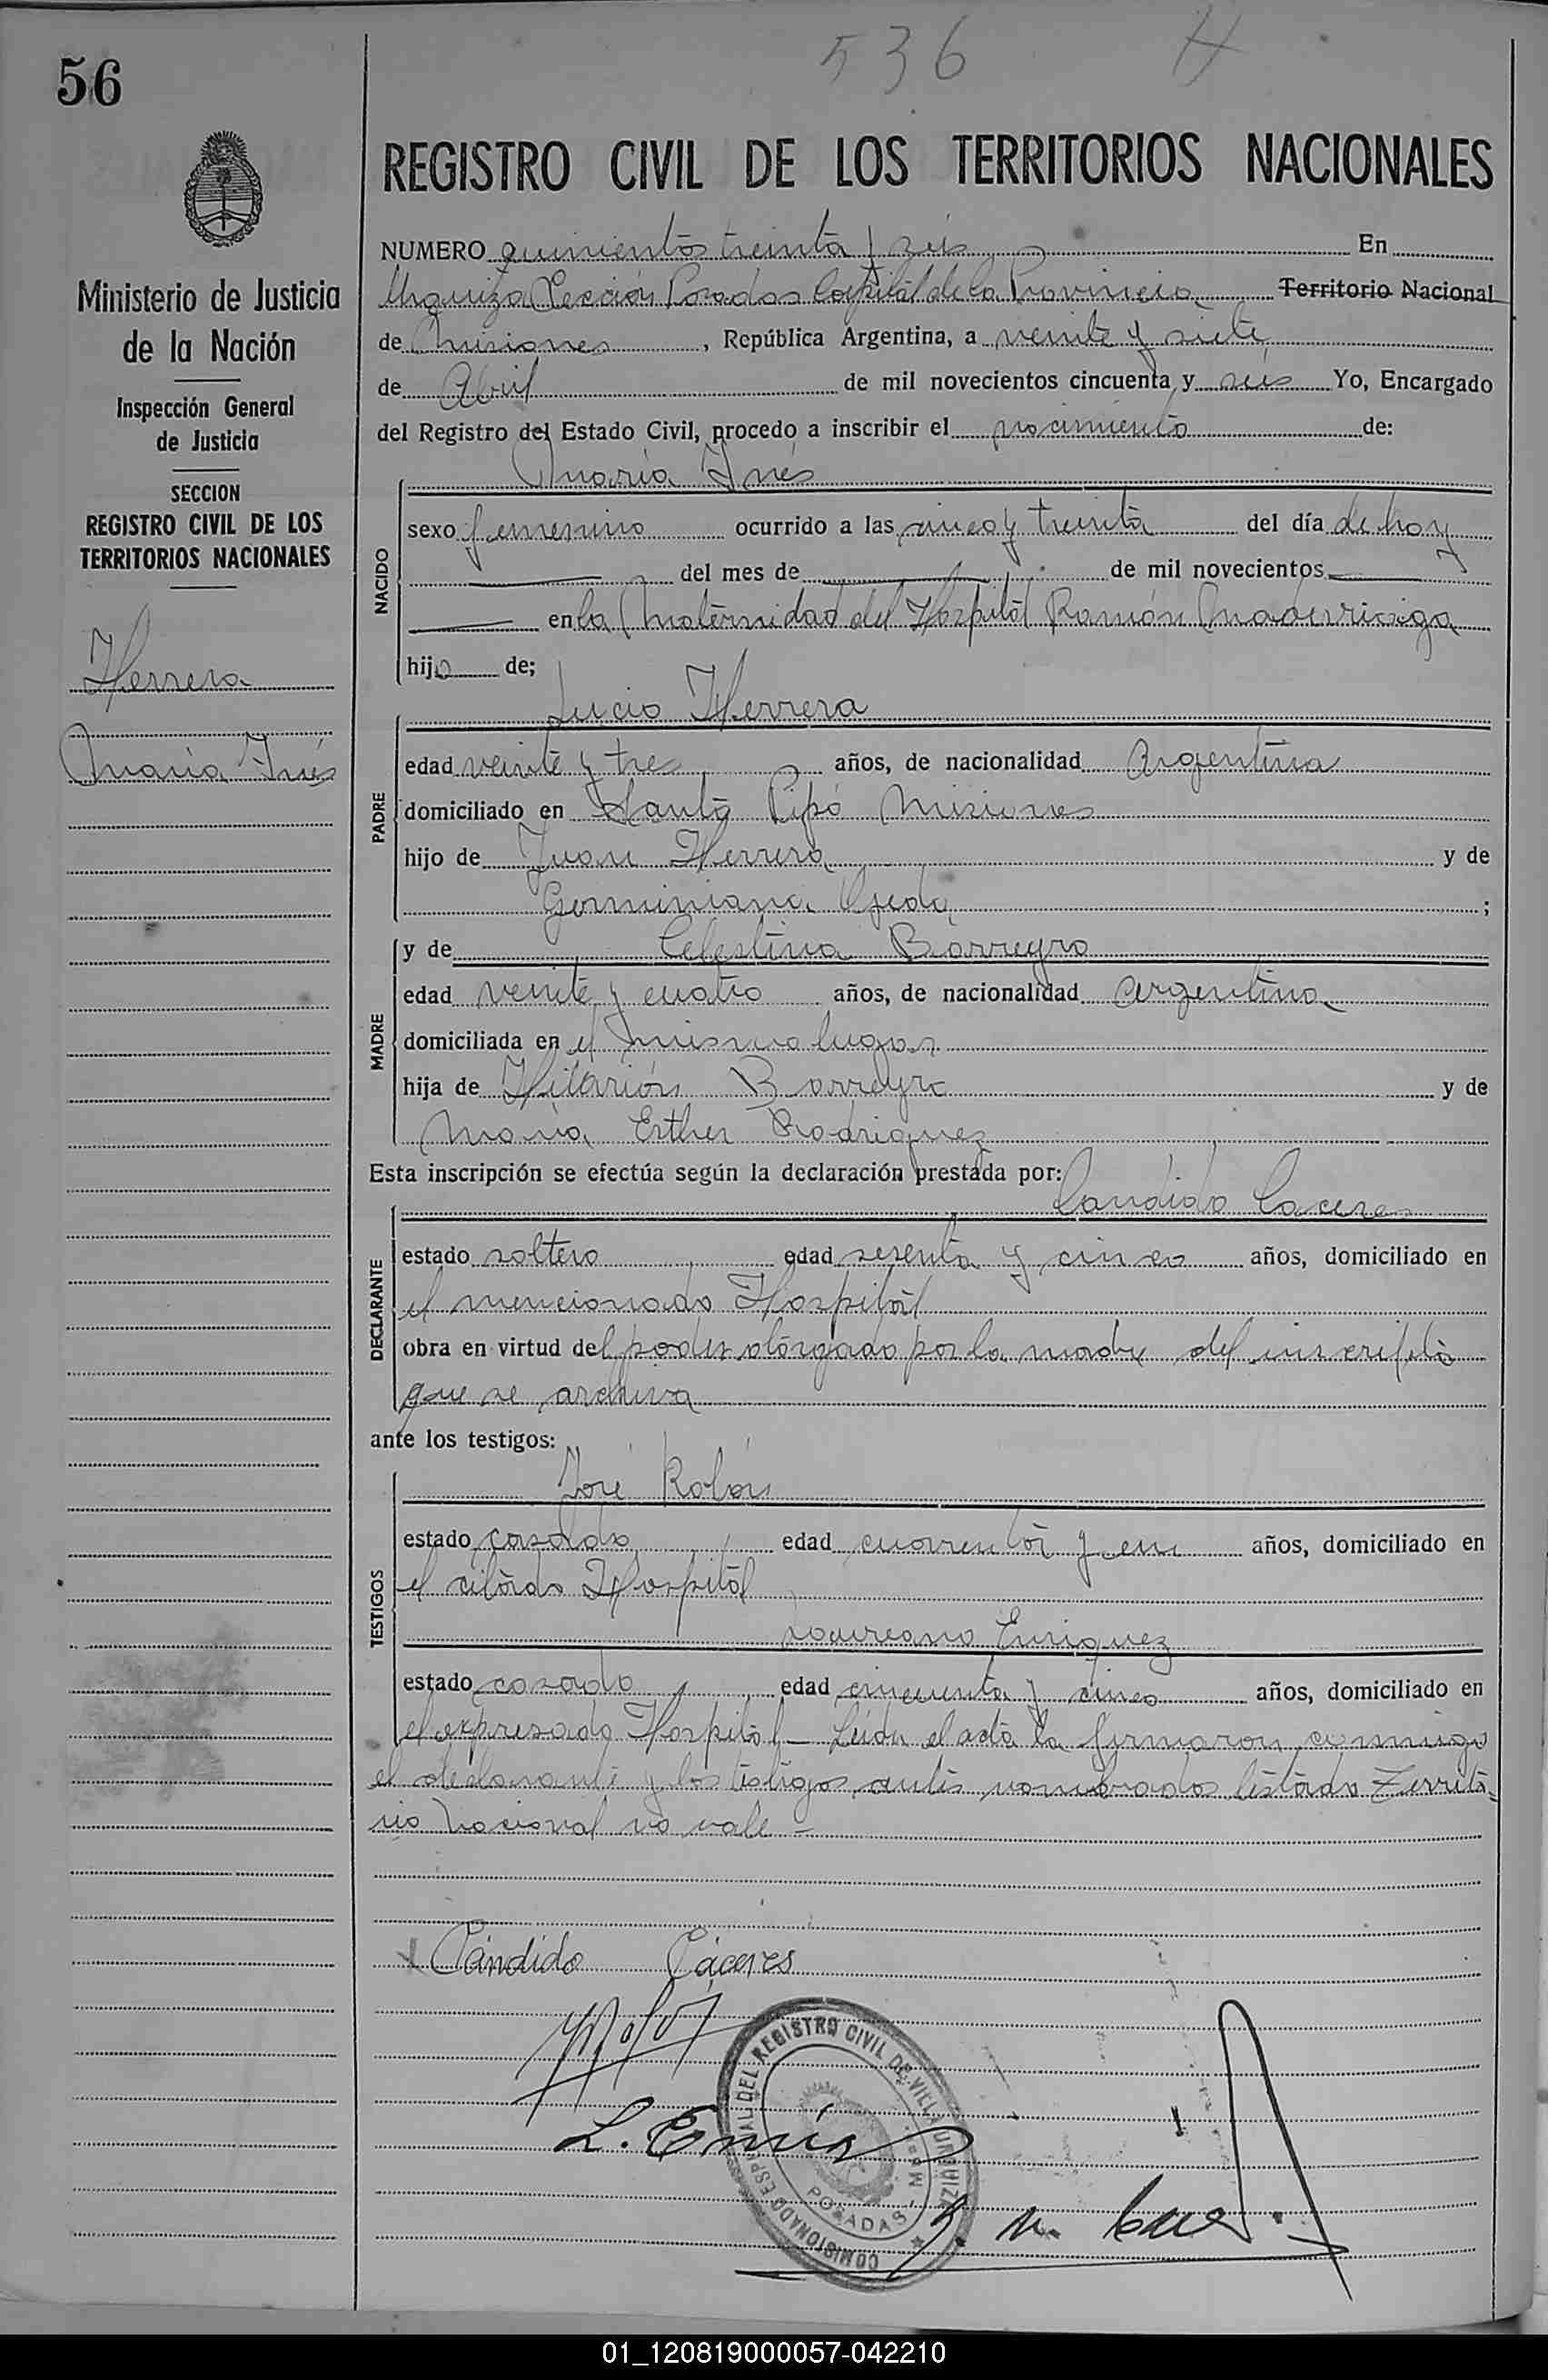 536 H
56
REGISTRO CIVIL DE LOS TERRITORIOS NACIONALES
Ministerio de Justicia
de la Nación
Inspección General
de Justicia
SECCION
REGISTRO CIVIL DE LOS
TERRITORIOS NACIONALES
Herrera
María Inés
NUMERO quinientos treinta y seis En
Urquiza Sección Posadas Capital de la Provincia Territorio Nacional
de Misiones, República Argentina, a veinte y siete
de Abril de mil novecientos cincuenta y seis Yo, Encargado
del Registro del Estado Civil, procedo a inscribir el nacimiento de:
María Inés
NACIDO
sexo femenino ocurrido a las cinco y treinta del día de hoy
del mes de de mil novecientos
en la Maternidad del Hospital Ramón Madarriaga
hija de;
Lucio Herrera
PADRE
edad veinte y tres años, de nacionalidad Argentina
domiciliado en Santo Pipó Misiones
hijo de Juan Herrera y de
Germiniana Ojeda;
MADRE
y de Celestina Barreyro
edad veinte y cuatro años, de nacionalidad argentina
domiciliada en el mismo lugar
hija de Hilarión Barreyro y de
María Esther Rodriguez
Esta inscripción se efectúa según la declaración prestada por:
Candido Caceres
DECLARANTE
estado soltero edad sesenta y cinco años, domiciliado en
el mencionado Hospital
obra en virtud del poder otorgado por la madre del inscripto
que se archiva
ante los testigos:
José Rolón
TESTIGOS
estado casado edad cuarenta y un años, domiciliado en
el citado Hospital
Laureano Enriquez
estado casado edad cincuenta y cinco años, domiciliado en
el expresado Hospital – Leida el acta la firmaron conmigo
el declarante y los testigos antes nombrados testado Territo=
rio Nacional no vale –
Cándido Cáceres
COMISIONADO ESPECIAL DEL REGISTRO CIVIL DE VILLA URQUIZA
POSADAS - Mnes.
01_120819000057-042210